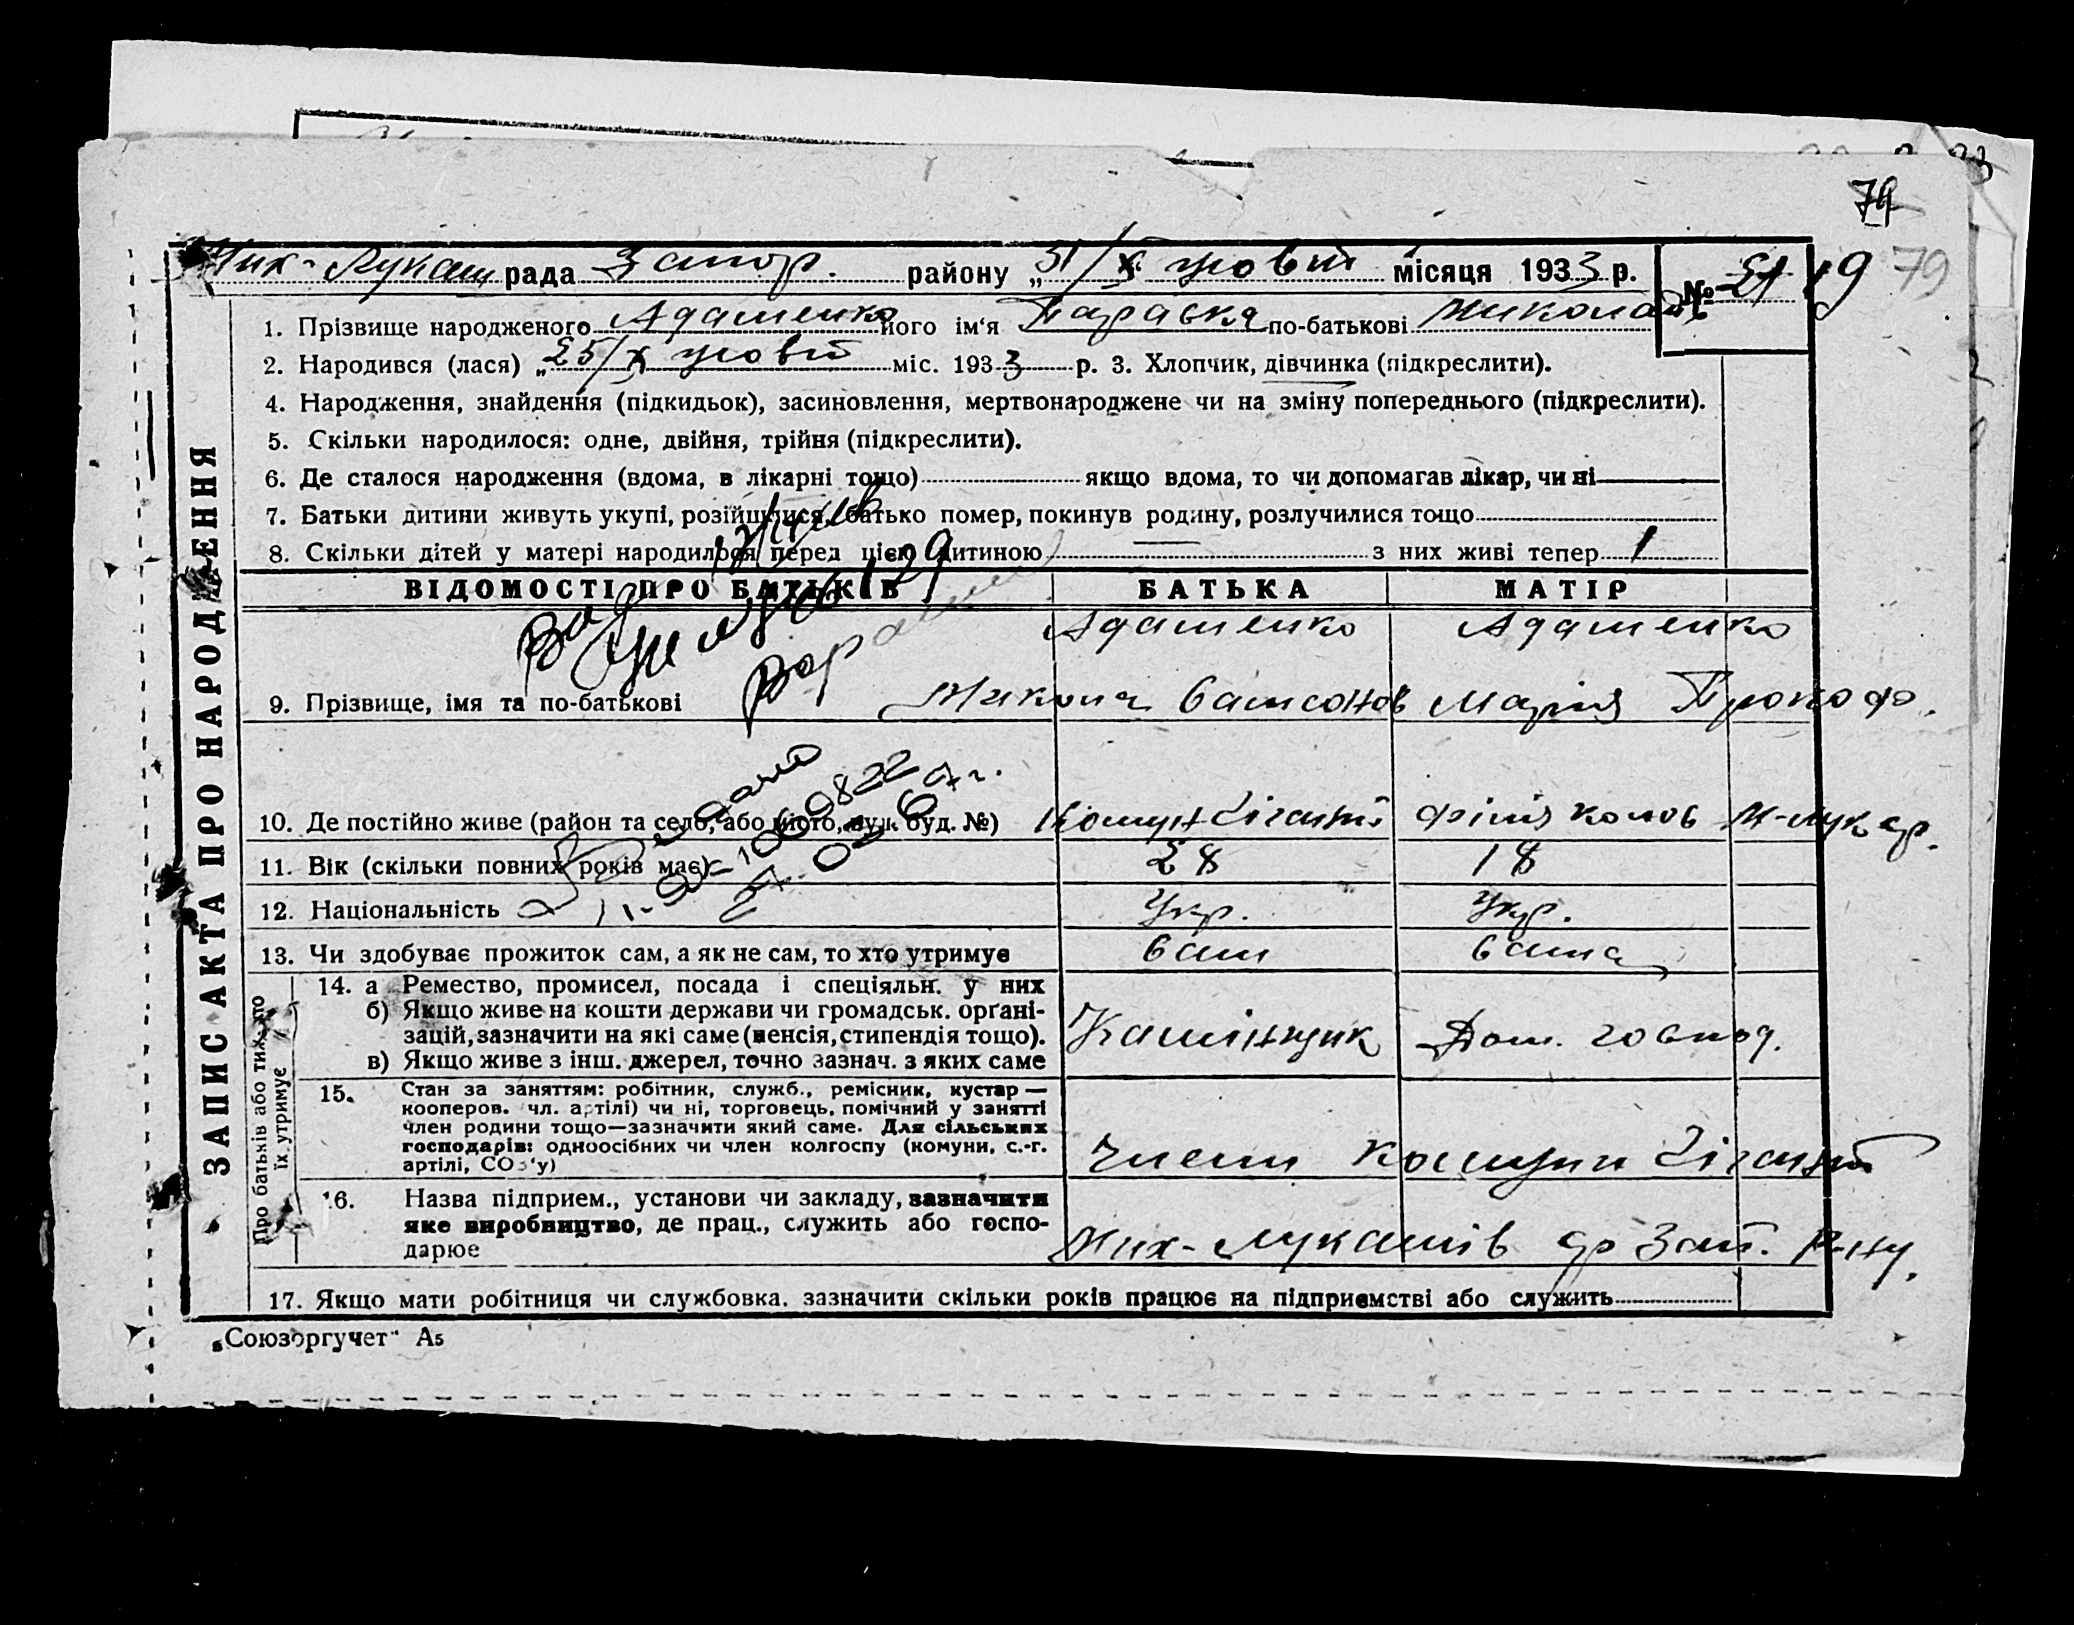 79
Мих-Лукаш рада Запор. району „31/X жовтн місяця 1933 р. № 21 19 79
1. Прізвище народженого Адаменко його ім'я Параска по-батькові Миколаїв
2. Народився (лася) „25/X жовт міс. 1933 р. 3. Хлопчик, дівчинка (підкреслити).
4. Народження, знайдення (підкидьок), засиновлення, мертвонароджене чи на зміну попереднього (підкреслити).
5. Скільки народилося: одне, двійня, трійня (підкреслити).
6. Де сталося народження (вдома, в лікарні тощо) якщо вдома, то чи допомагав лікар, чи ні
7. Батьки дитини живуть укупі, розійшлися, батько помер, покинув родину, розлучилися тощо
8. Скільки дітей у матері народилося перед цією дитиною з них живі тепер 1
ЗАПИС АКТА ПРО НАРОДЖЕННЯ
ВІДОМОСТІ ПРО БАТЬКІВ БАТЬКА МАТІР
Адаменко Адаменко
9. Прізвище, імя та по-батькові Микола Самсонов Марія Прокоф.
Видано
1009822
10. Де постійно живе (район та село, або місто, вул. буд. №) Комун Гігант філія колов М-Лук ср.
11. Вік (скільки повних років має) 28 18
12. Національність Укр. Укр.
13. Чи здобуває прожиток сам, а як не сам, то хто утримує сам сама
Про батьків або тих, хто їх утримує
14. а Ремество, промисел, посада і спеціяльн. у них
б) Якщо живе на кошти держави чи громадськ. орґані-
зацій, зазначити на які саме (пенсія, стипендія тощо).
в) Якщо живе з інш. джерел, точно зазнач. з яких саме
Камінщик Дом. господ.
15. Стан за заняттям: робітник, служб., ремісник, кустар —
кооперов. чл. артілі) чи ні, торговець, помічний у занятті
член родини тощо—зазначити який саме. Для сільських
господарів: одноосібних чи член колгоспу (комуни, с.-г.
артілі, СОЗ'у)
Члени комуни Гігант
16. Назва підприєм., установи чи закладу, зазначити
яке виробництво, де прац., служить або госпо-
дарює
Мих-Лукашів ср Зап. р-ну.
17. Якщо мати робітниця чи службовка. зазначити скільки років працює на підприємстві або служить
„Союзоргучет" А5